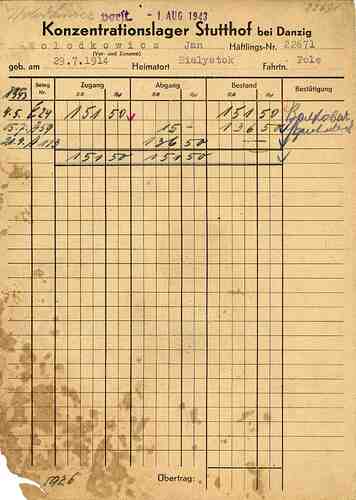 verst. - 1. AUG 1943 22671
Konzentrationslager Stutthof bei Danzig
Wolodkowicz Jan Häftlings-Nr. 22671
(Vor- und Zuname)
geb. am 29.7.1914 Heimatort Bialystok Fahrtn. Pole
1943 Beleg Nr. Zugang Abgang Bestand Bestätigung
RM Rpf RM Rpf RM Rpf
4.5. 151 50 151 50
15.7. 759 15 - 136 50
1113 136 50 —
151 50 151 50
5926
Übertrag: